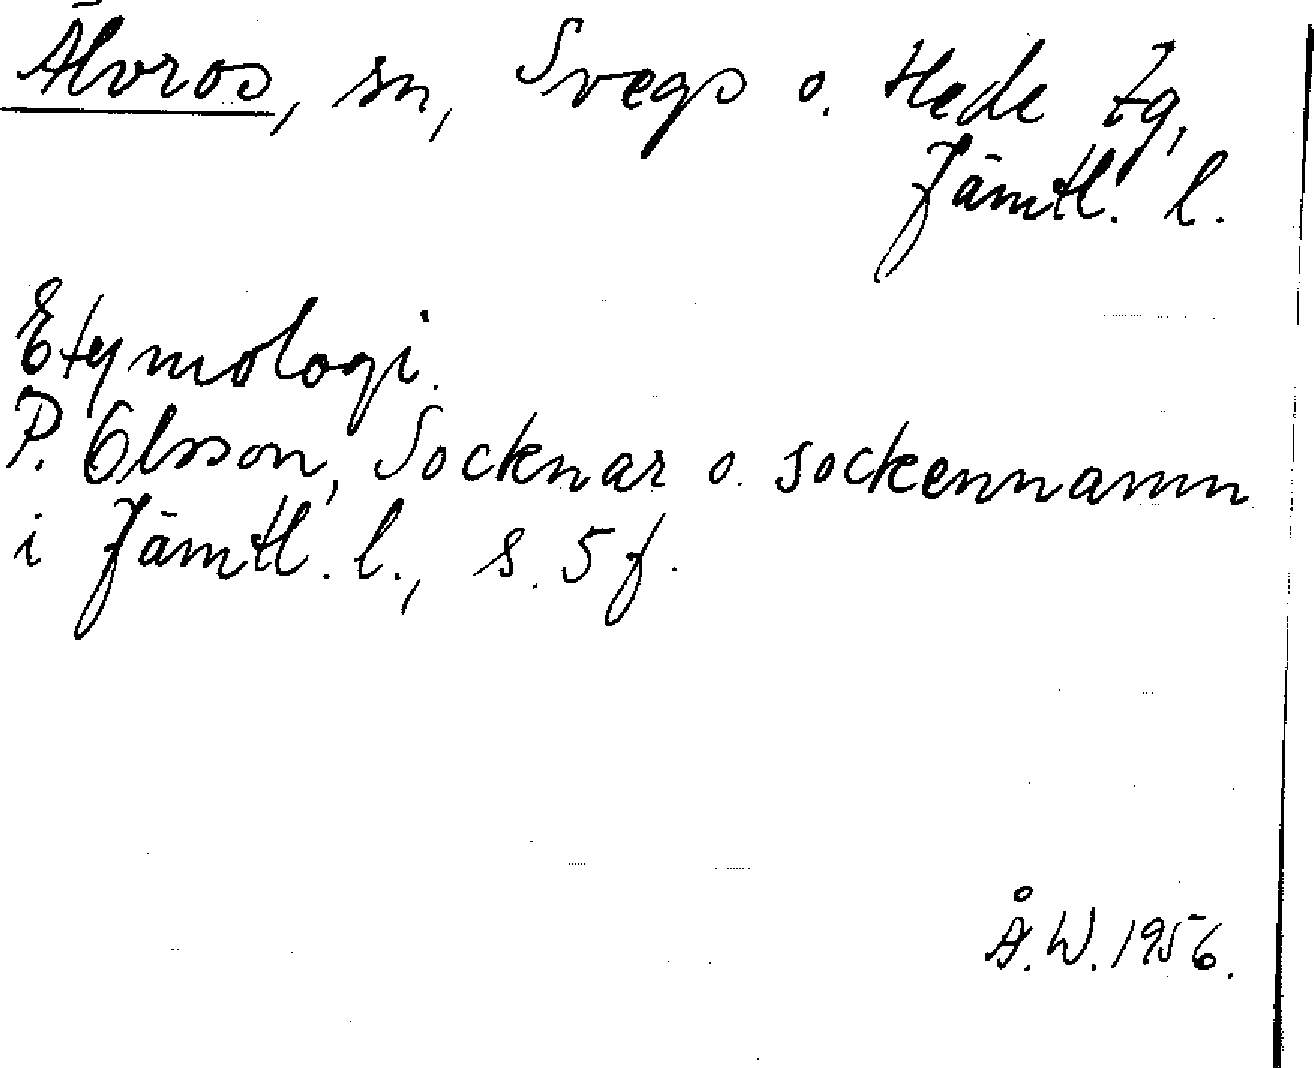 Älvros, sn, Svegs o. Hede tg,
Jämtl. l.
Etymologi.
P. Olsson, Socknar o. sockennamn
i Jämtl. l., s. 5 f.
Å. W. 1956.